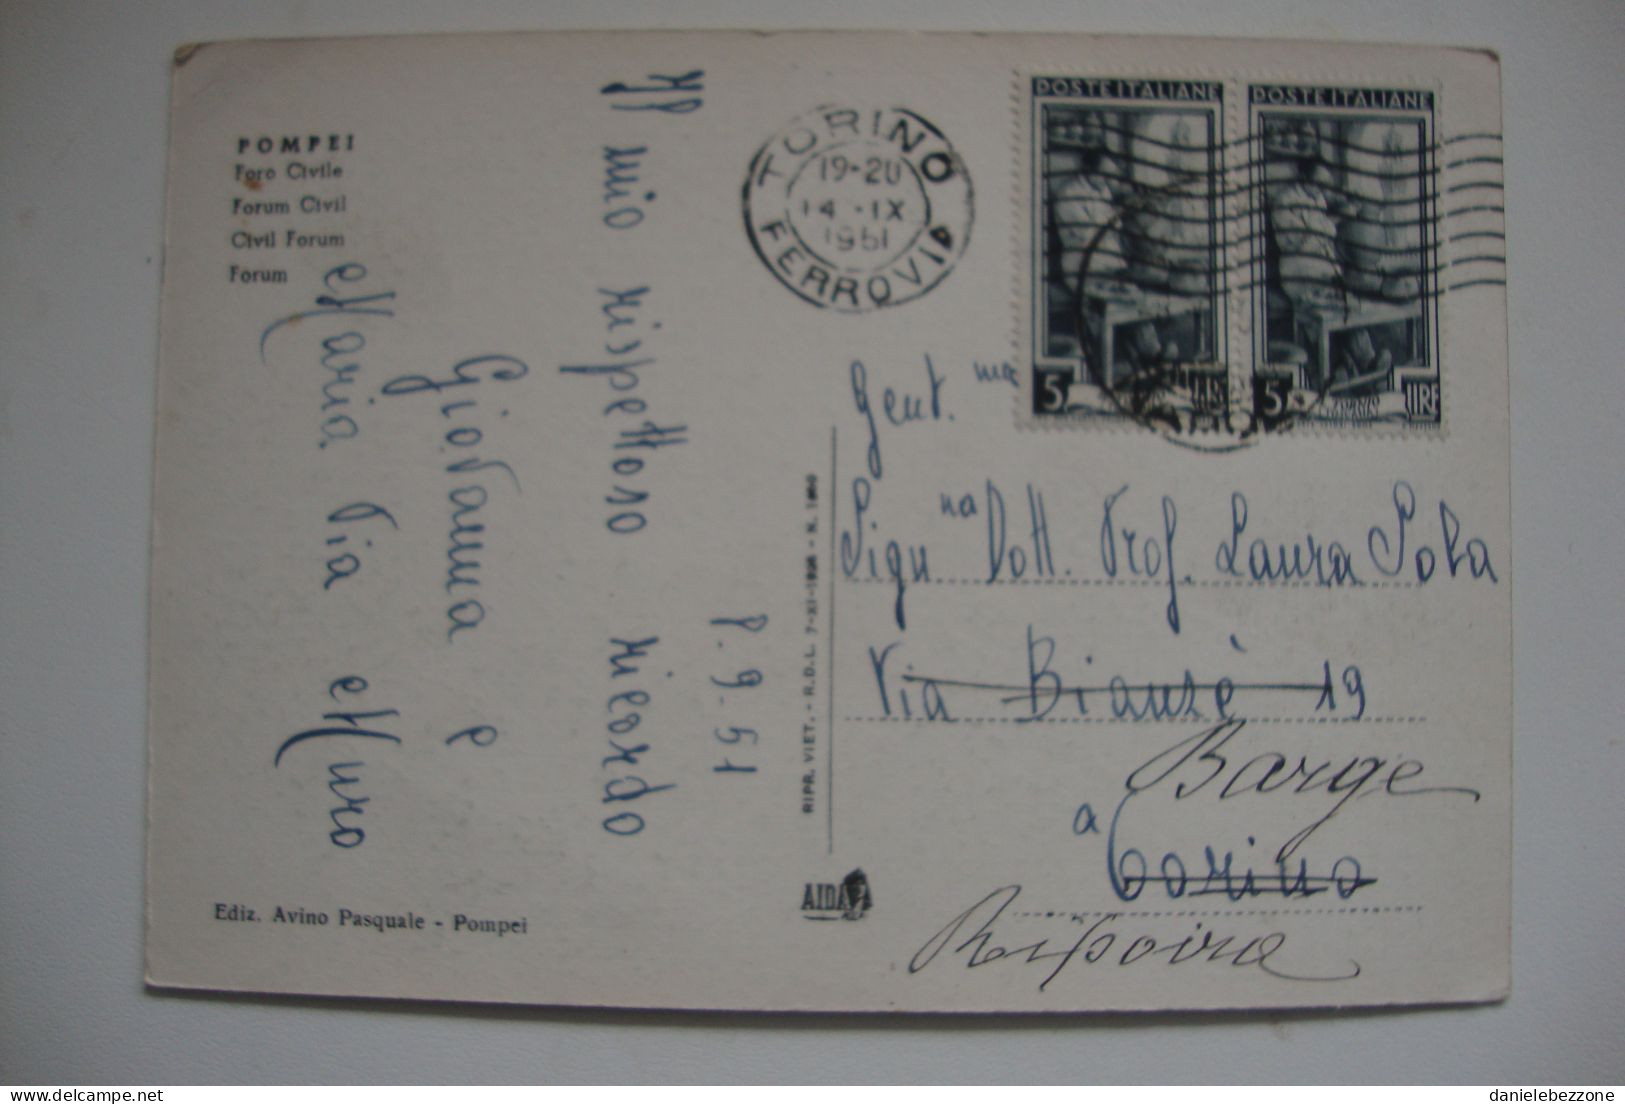 POMPEI
Foro Civile
Forum Civil
Civil Forum
Forum
Il mio rispettoso ricordo
Giovanna e
Maria Pia Muro
9.51
Ediz. Avino Pasquale - Pompei
RIPR. VIET. - R.D.L. 7-XI-1926 - N. 1960
AIDA
TORINO
19-20
14 - IX
1951
FERROVIA
POSTE ITALIANE
5 LIRE
POSTE ITALIANE
5 LIRE
Gent. ma
Sign na Dott. Prof. Laura Sola
Via Bianzè 19
Barge
a Torino
Ripoira
danielebezzone